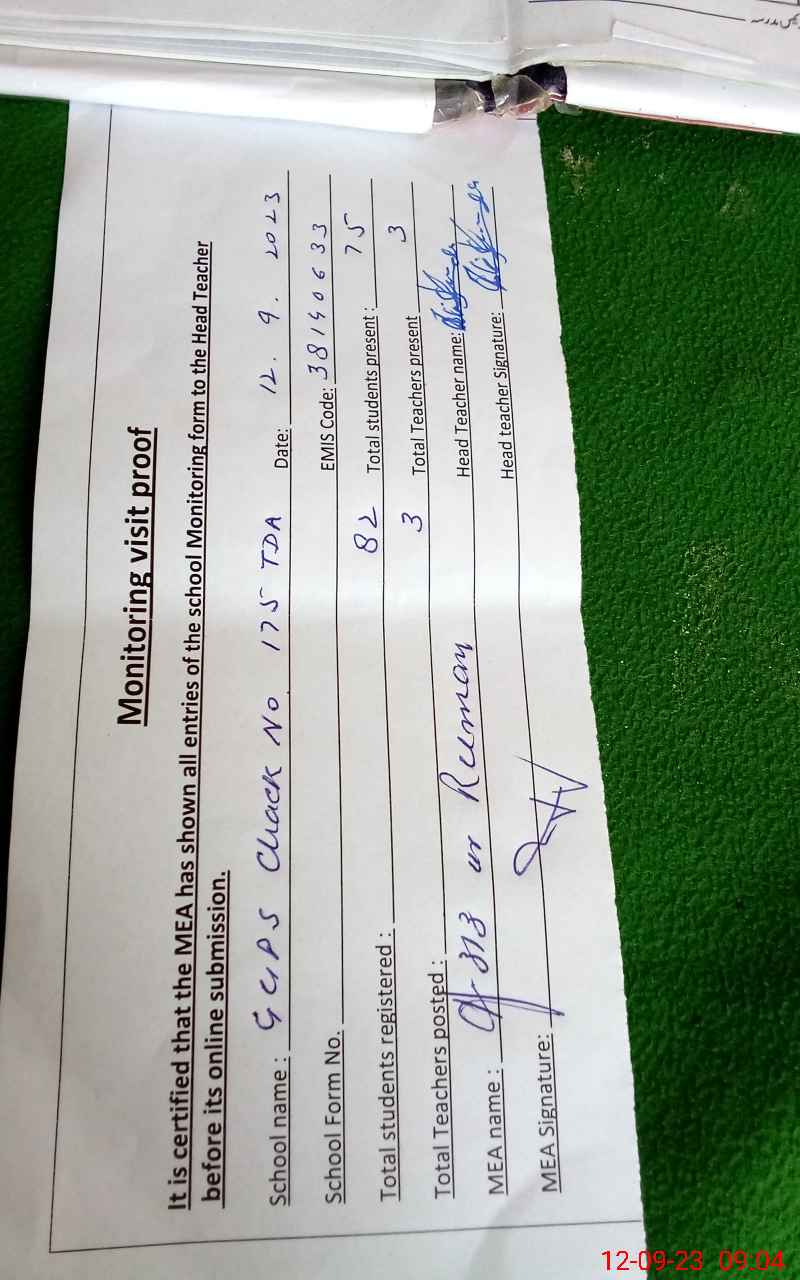 Monitoring visit proof
It is certified that the MEA has shown all entries of the school Monitoring form to the Head Teacher
before its online submission.
School name : GGPS Chack No 175 TDA Date: 12. 9. 2023
School Form No. EMIS Code: 38140633
Total students registered : 82 Total students present : 75
Total Teachers posted : 3 Total Teachers present 3
MEA name : ur Reman Head Teacher name:
MEA Signature: Head teacher Signature:
12-09-23 09:04